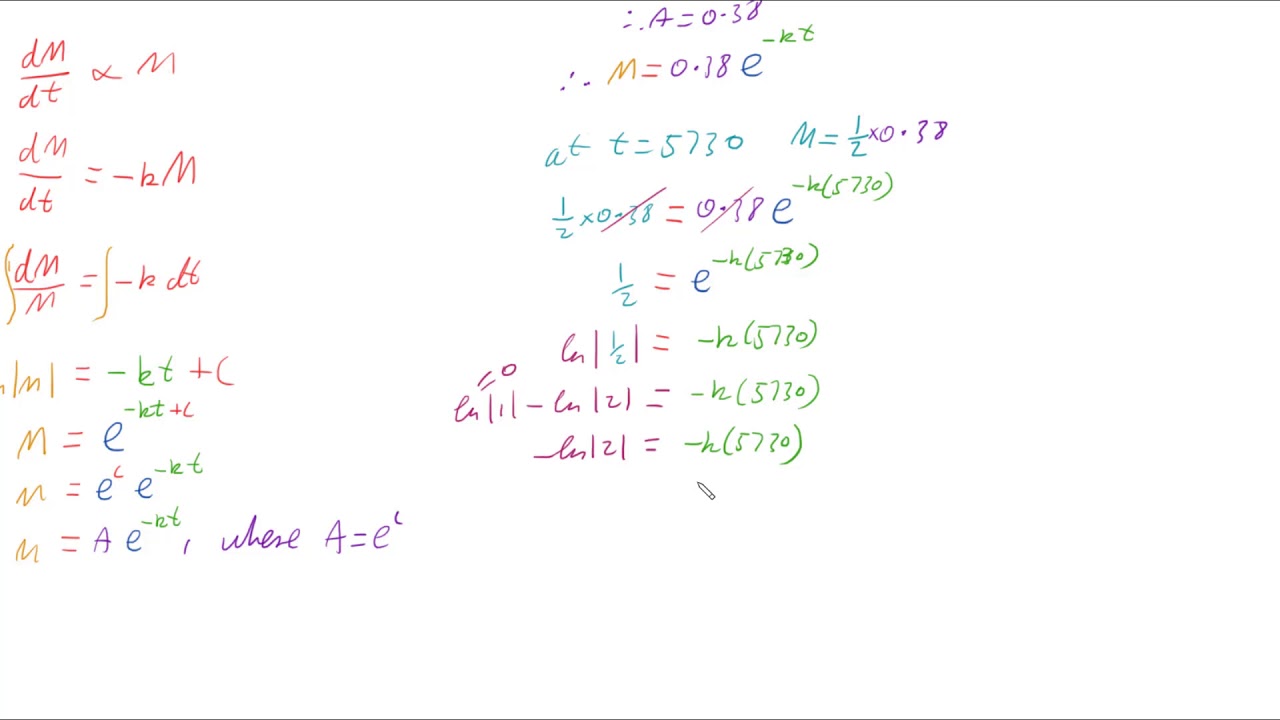 dM/dt ∝ M
dM/dt = -kM
∫dM/M = ∫-k dt
|M| = -kt + C
M = e^(-kt+c)
M = e^c e^(-kt)
M = A e^(-kt), where A = e^c
∴ A = 0.38
∴ M = 0.38 e^(-kt)
at t = 5730 M = 1/2 × 0.38
1/2 × 0.38 = 0.38 e^(-k(5730))
1/2 = e^(-k(5730))
ln|1/2| = -k(5730)
= 0
ln|1| - ln|2| = -k(5730)
-ln|2| = -k(5730)